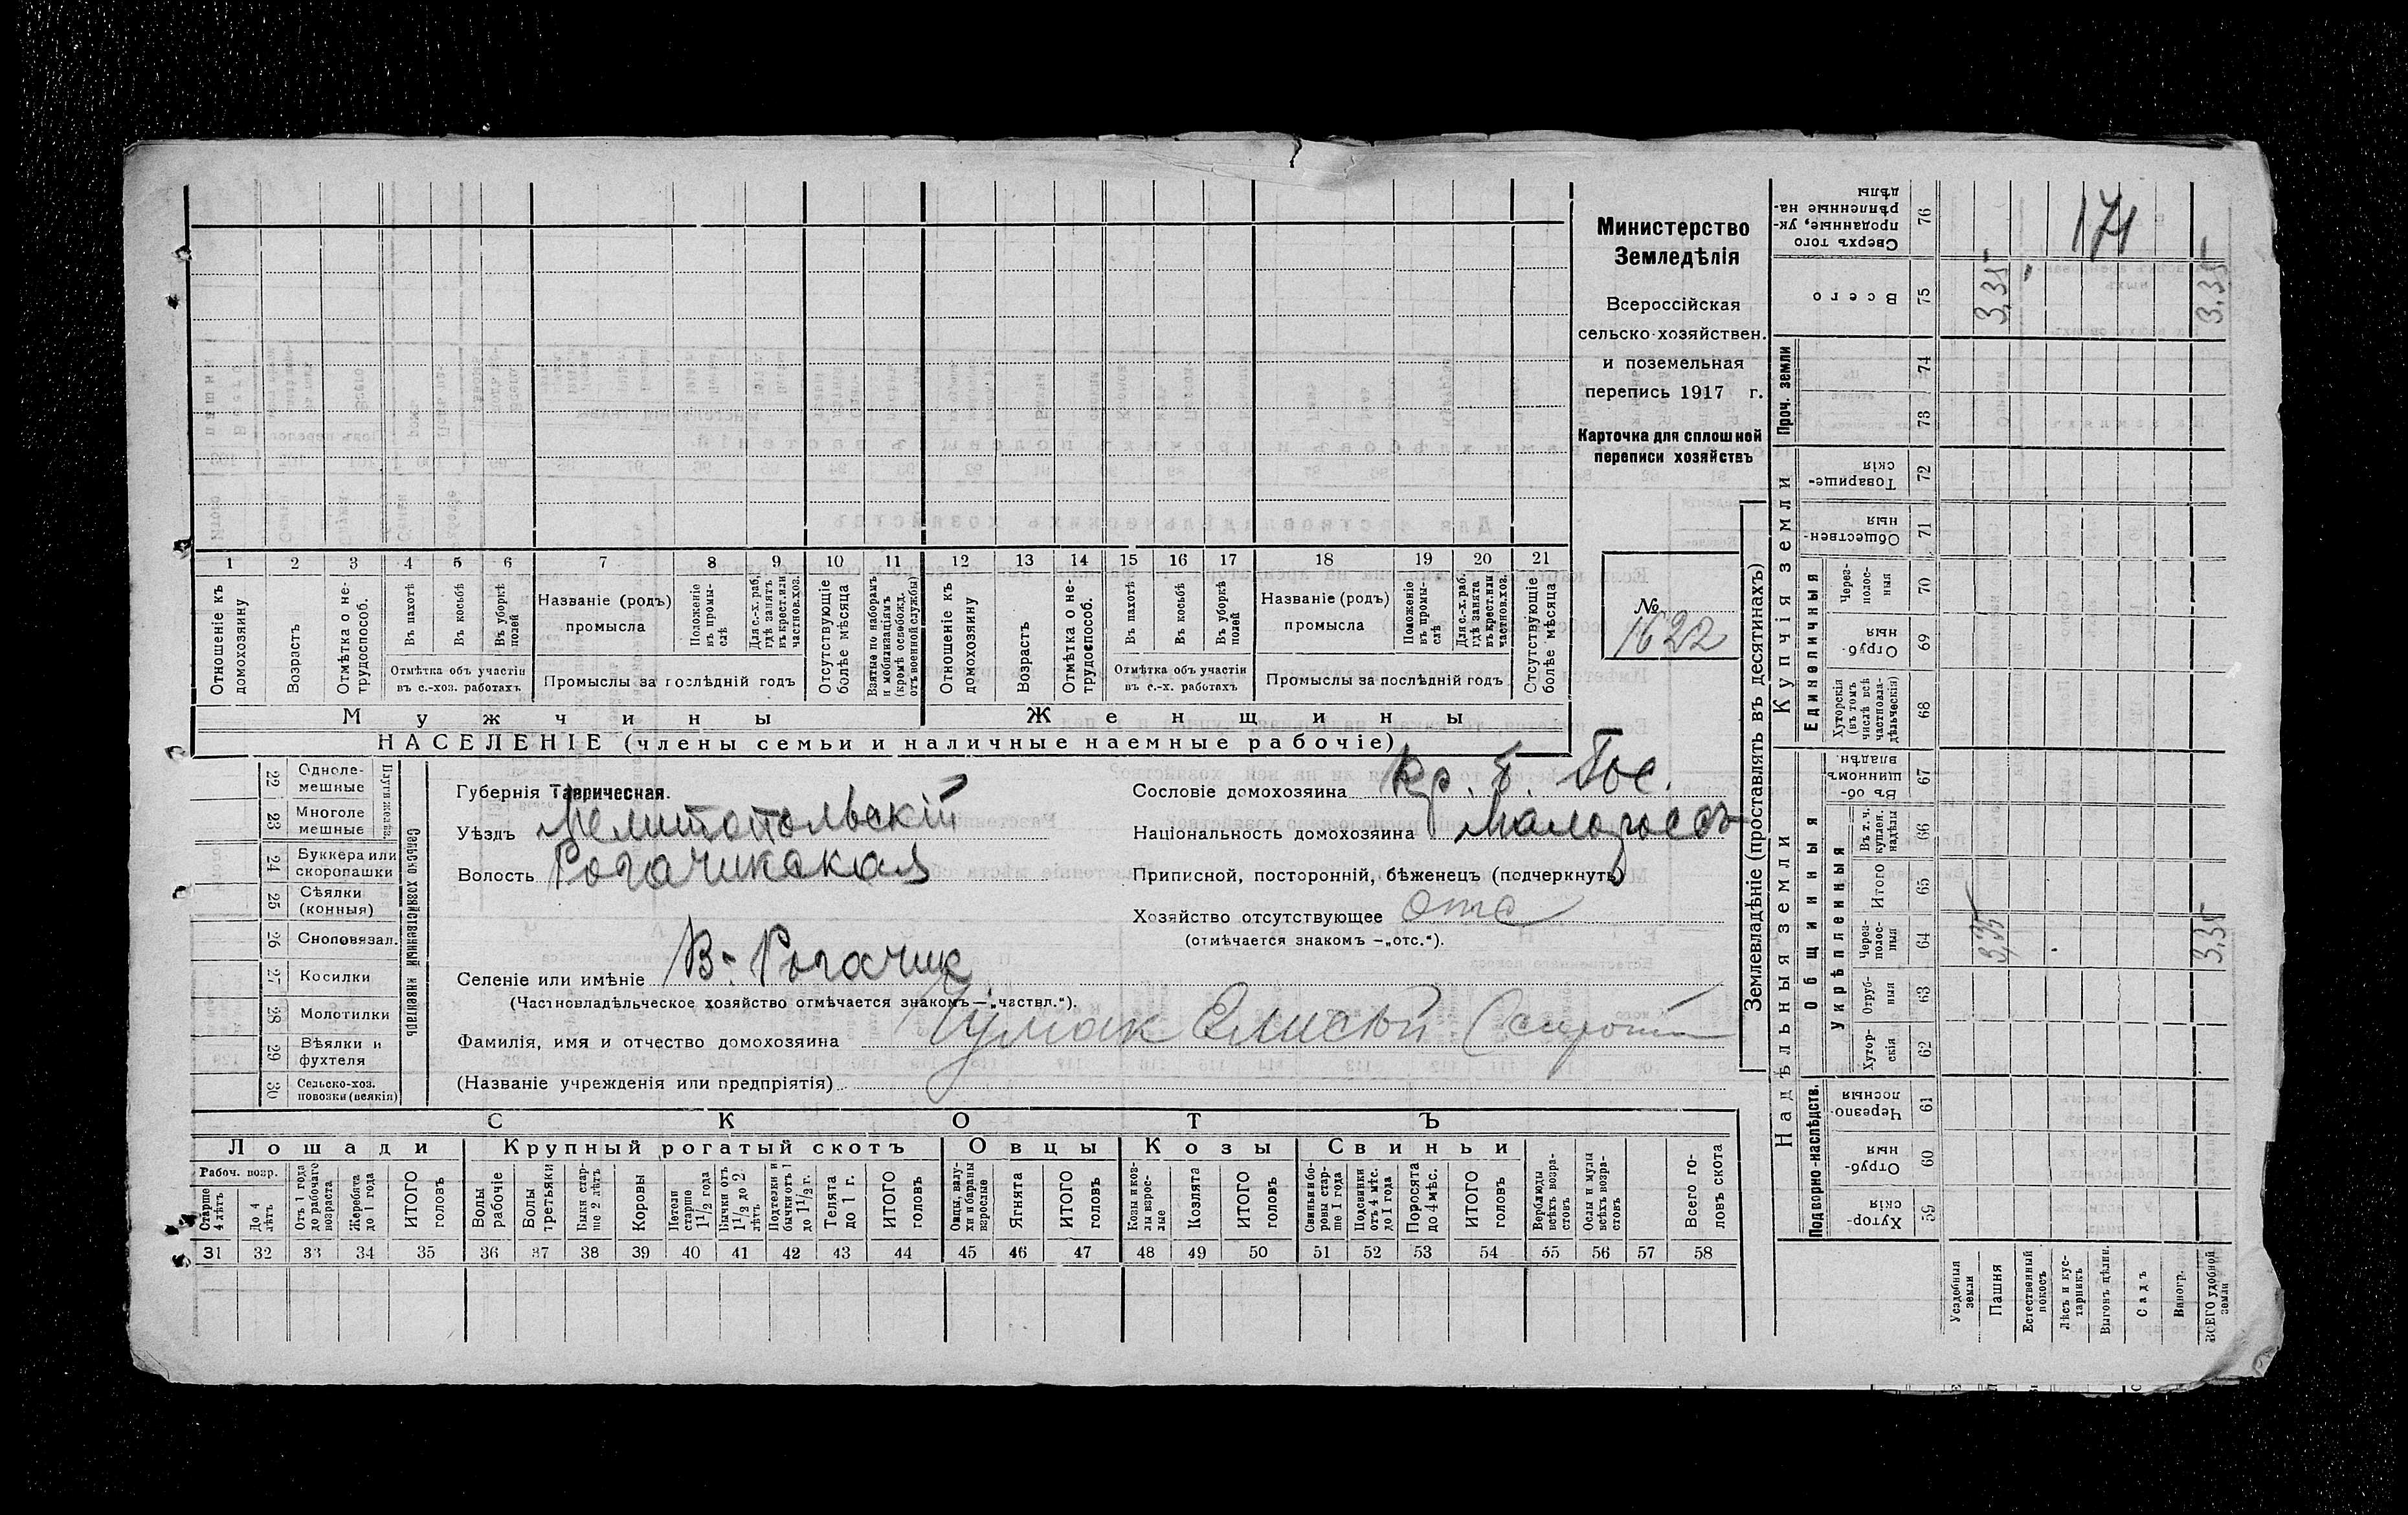 Министерство
Земледѣлія
Всероссійская
сельско-хозяйствен.
и поземельная
перепись 1917 г.
Карточка для сплошной
переписи хозяйствъ
№
1622
1 2 3 4 5 6 7 8 9 10 11 12 13 14 15 16 17 18 19 20 21
Отношеніе къ домохозяину
Возрастъ
Отмѣтка о не-трудоспособ.
Въ пахотѣ
Въ косьбѣ
Въ уборкѣ полей
Отмѣтка объ участіи
въ с.-хоз. работахъ
Названіе (родъ)
промысла
Положеніе въ промы-слѣ
Для с.-х. раб., гдѣ занятъ въ крест. или частнов. хоз.
Промыслы за послѣдній годъ
Отсутствующіе болѣе мѣсяца
Взятые по наборамъ и мобилизаціямъ (кромѣ освобожд. отъ военной службы)
Отношеніе къ домохозяину
Возрастъ
Отмѣтка о не-трудоспособ.
Въ пахотѣ
Въ косьбѣ
Въ уборкѣ полей
Отмѣтка объ участіи
въ с.-х. работахъ
Названіе (родъ)
промысла
Положеніе въ промы-слѣ
Для с.-х. раб. гдѣ занята въ крест. или частнов. хоз.
Промыслы за послѣдній годъ
Отсутствующіе болѣе мѣсяца
Мужчины
Женщины
НАСЕЛЕНІЕ (члены семьи и наличные наемные рабочіе)
Сельско-хозяйственный инвентарь
Плуги желѣз.
22 Одноле-мешные
23 Многоле мешные
24 Буккера или скоропашки
25 Сѣялки (конныя)
26 Сноповязал.
27 Косилки
28 Молотилки
29 Вѣялки и фухтеля
30 Сельско-хоз. повозки (всякія)
Губернія Таврическая.
Уѣздъ Мелитопольскій
Волость Рогачикская
Селеніе или имѣніе В. Рогачик
(Частновладѣльческое хозяйство отмѣчается знакомъ—„частвл.“).
Фамилія, имя и отчество домохозяина Чумак Елисей
(Названіе учрежденія или предпріятія)
Сословіе домохозяина Кр. б. Гос.
Національность домохозяина Малоросс
Приписной, посторонній, бѣженецъ (подчеркнуть)
Хозяйство отсутствующее отс
(отмѣчается знакомъ —„отс.“).
СКОТЪ
Лошади
Крупный рогатый скотъ
Овцы
Козы
Свиньи
Рабоч. возр.
Старше 4 лѣтъ
До 4 лѣтъ
Отъ 1 года до рабочаго возраста
Жеребята до 1 года
ИТОГО головъ
Волы рабочіе
Волы третьяки
Быки стар-ше 2 лѣтъ
Коровы
Нетели старше 1 1/2 года
Бычки отъ 1 1/2 до 2 лѣтъ
Подтелки и бычки отъ 1 до 1 1/2 г.
Телята до 1 г.
ИТОГО головъ
Овцы, валу-хи и бараны взрослые
Ягнята
ИТОГО головъ
Козы и коз-лы взрос-лые
Козлята
ИТОГО головъ
Свиньи и бо-ровы стар-ше 1 года
Подсвинки отъ 4 мѣс. до 1 года
Поросята до 4 мѣс.
ИТОГО головъ
Верблюды всѣхъ возра-стовъ
Ослы и мулы всѣхъ возра-стовъ
Всего го-ловъ скота
31 32 33 34 35 36 37 38 39 40 41 42 43 44 45 46 47 48 49 50 51 52 53 54 55 56 57 58
Землевладѣніе (проставлять въ десятинахъ)
Надѣльныя земли
Купчія земли
Проч. земли
Подворно-наслѣдств.
Общинныя
Укрѣпленныя
Единоличныя
Сверхъ того проданные, ук-рѣпленные на-дѣлы 76
Всего 75
74
73
Товарище-скія 72
Обществен-ныя 71
Через-полос-ныя 70
Отруб-ныя 69
Хуторскія (въ томъ числѣ всѣ частновла-дѣльческія) 68
Въ об-щинномъ владѣн. 67
Въ т. ч. куплен. надѣлы 66
Итого 65
Через-полос-ныя 64
Отруб-ныя 63
Хутор-скія 62
Черезпо-лосныя 61
Отруб-ныя 60
Хутор-скія 59
Усадебныя земли
Пашня
Естественный покосъ
Лѣсъ и кус-тарникъ
Выгонъ цѣлин.
Садъ
Виногр.
ВСЕГО удобной земли
171
3,35
3,35
3,35
3,35